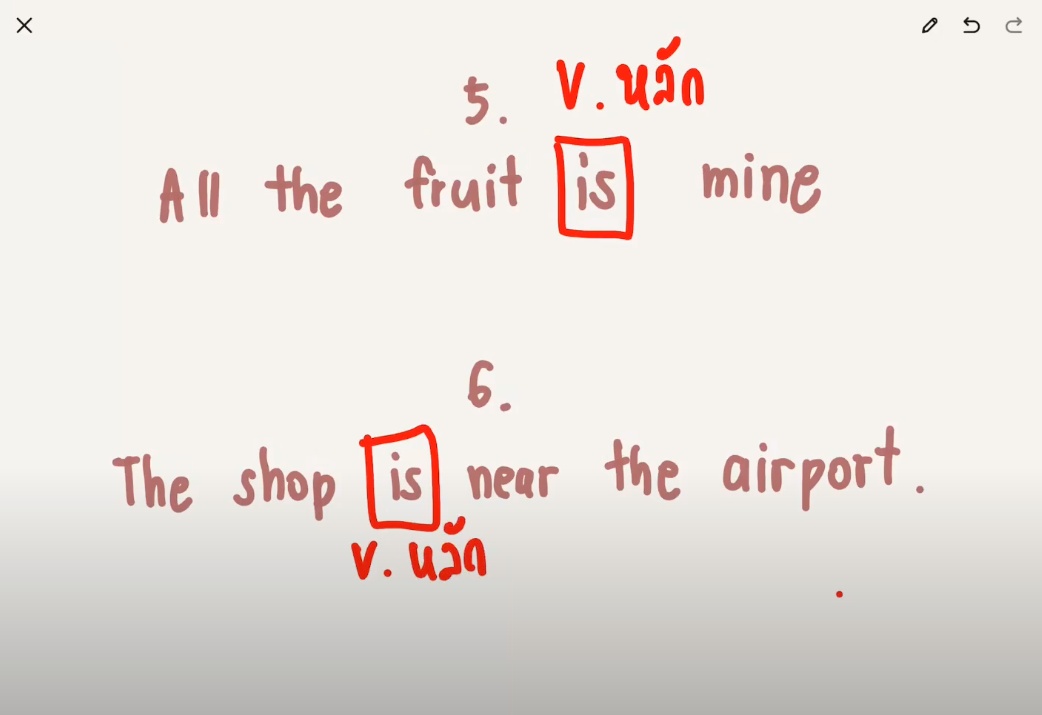 5. v. หลัก
All the fruit is mine
6.
The shop is near the airport.
v. หลัก